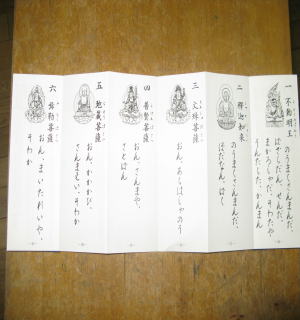 一 不動明王
のうまくさんまんだ、
ばざらだん、せんだ、
まかろしゃだ、そわたや
うんたらた、かんまん
二 釋迦如来
のうまくさんまんだ、
ぼだなん、ばく
三 文殊菩薩
おん、あらはしゃのう
四 普賢菩薩
おん、さんまや、
さとばん
五 地蔵菩薩
おん、かかかび、
さんまえい、そわか
六 弥勒菩薩
おん、まいたれいや、
そわか